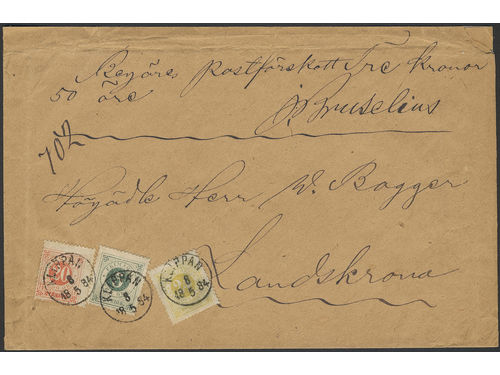 Begäres postförskott Tre kronor
50 öre
Bruselius
702
Högädle Herr W. Bagger
Landskrona
KLIPPAN
8
18 5 84
KLIPPAN
8
18 5 84
KLIPPAN
8
18 5 84